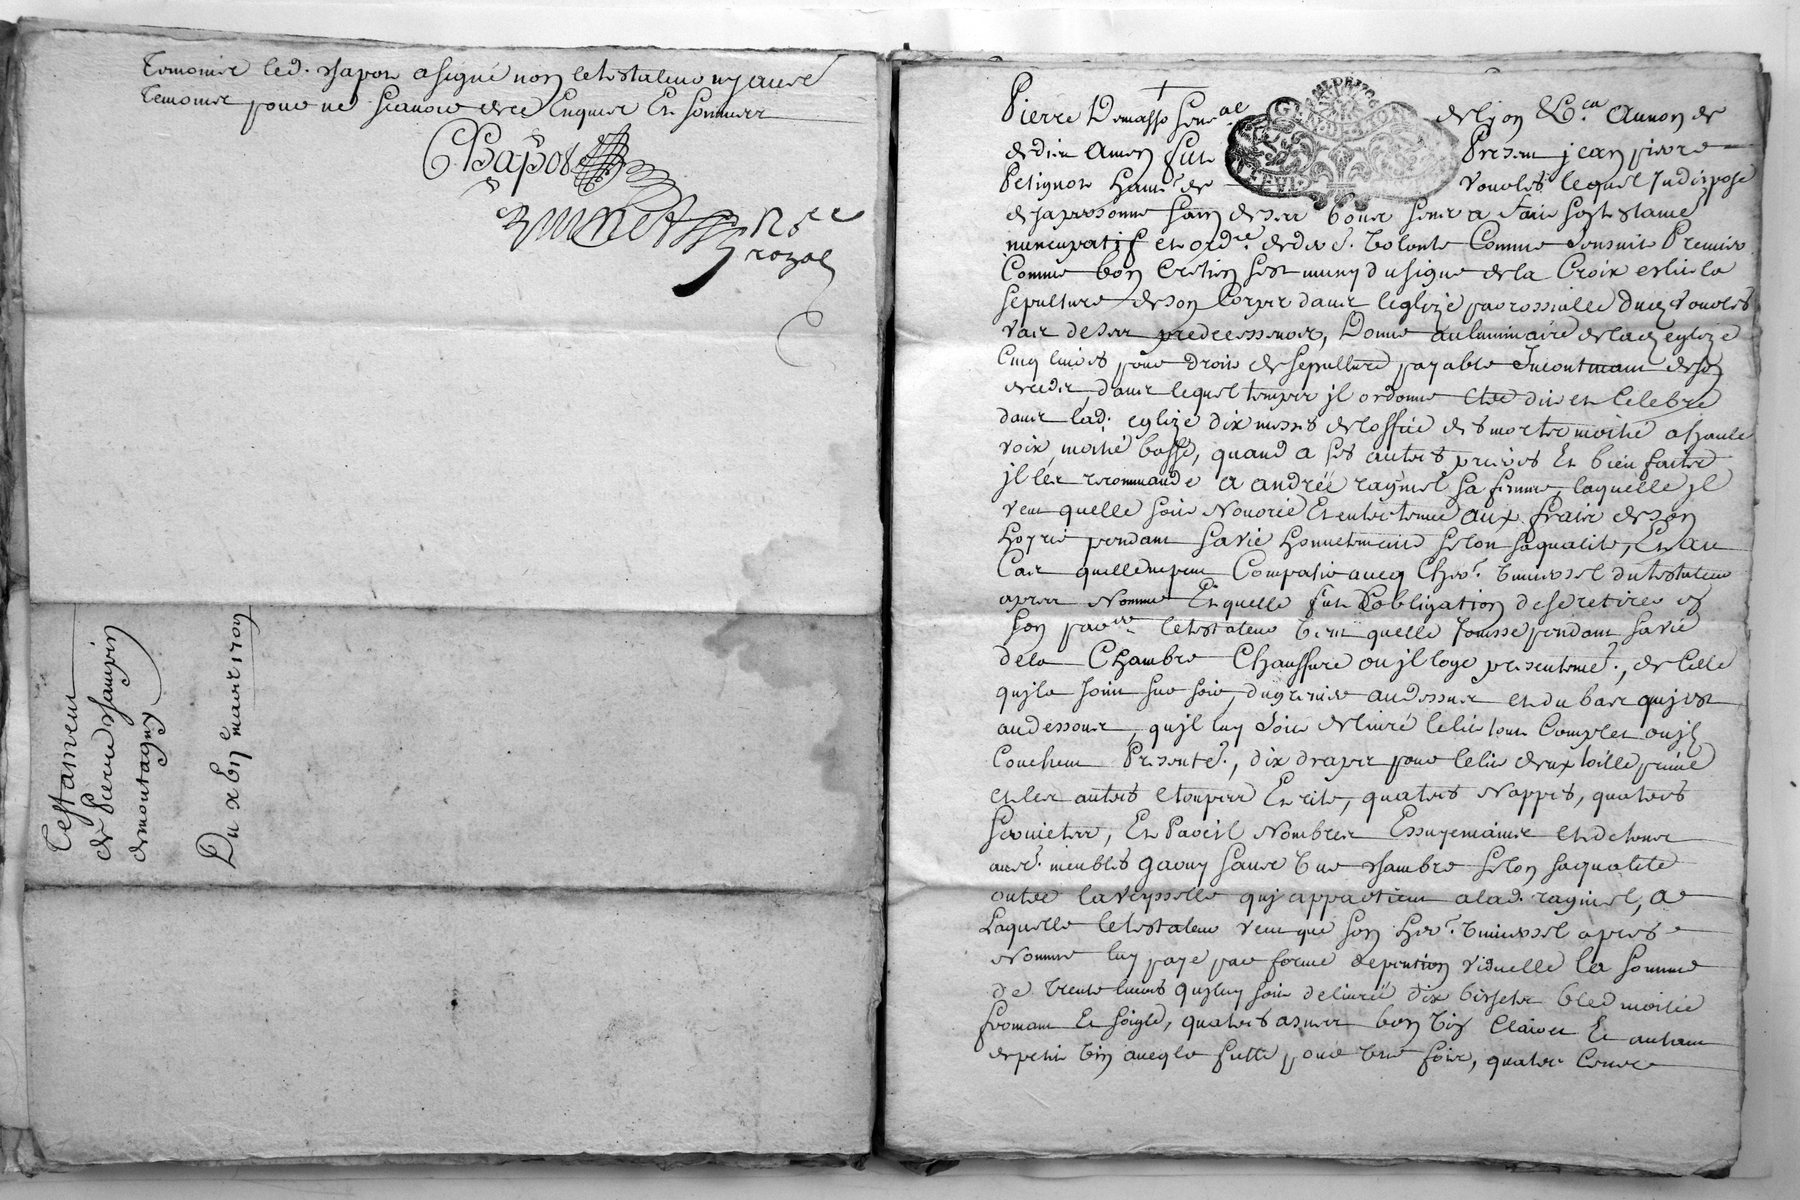 temoins led. Chapot a signé non le testateur ny autres
temoins pour ne scavoir de ce enquis et sommés
Chapot
Nre
royal
Testament
de Pierre
de montagny
Du xbiie mars 1701
Pierre Demasso senal de Lyon &ca au nom de
de dieu amen fut Present jean pierre
Petignot de vourles lequel Indispose
de sa personne sain de ses bons sens a faict son testament
nuncupatif et ordce de dere. volonte comme sensuit Premier
Comme bon cretien sest muny du signe de la Croix eslit la
sepulture de son corps dans leglize parrossialle dud vourles
vas de ses predecesseurs, Donne au luminaire de lad eglize
cinq livres pour droit de sepulture payable Incontinant desd
deces, dans lequel temps il ordonne etre dit et celebré
dans lad. eglize dix messes de loffice des morts moitié a haute
voix, moitié basse, quand a ses autres prieres et bien faits
jl les recommande a andrée raginel sa femme, laquelle jl
veut quelle soit Nourrie et entretenue aux fraix de son
hoyrie pendant sa vie honnetement selon sa qualite, et au
cas quelle ne peut compatir avecq lher. universel du testateur
apres Nommé et quelle fut Dobligation de se retirer en
son le testateur veut quelle Jouisse pendant sa vie
de la Chambre Chauffure ou jl loge presentemt., de celle
qui la joint sur soir, du grenier au dessus et du bas qui est
au dessous, qujl luy soit delivré le lit tout complet ou jls
couchent Presentt., dix draps pour le lit deux toille prime
et les autres etoupes et rite, quatres Nappes, quatres
serviettes, et Pareil Nombres Essuyemains et de tous
autrs. meubles garny dans une chambre selon sa qualite
outre la veysselle qui appartient a lad. raginel, a
Laquelle le testateur veut que son her. universel apres
Nommé luy paye par forme de pention viduelle la somme
de trente livres qujluy soit delivré dix bichets bled moitié
froment et soigle, quatres asnées bon vin clairet et autant
de petit vin avecq la futte pour une fois, quatre